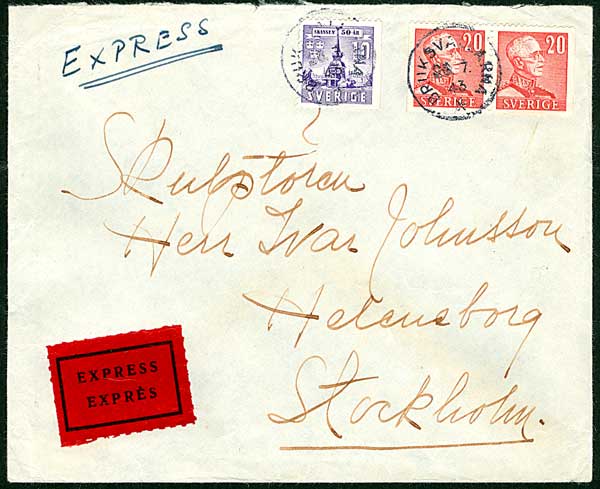 EXPRESS
SKANSEN 50 ÅR
SVERIGE
20 20
SVERIGE
BRUKSVALLARNA
7. 43
Skulptören
Herr Ivar Johnsson
Heleneborg
Stockholm.
EXPRESS
EXPRÈS